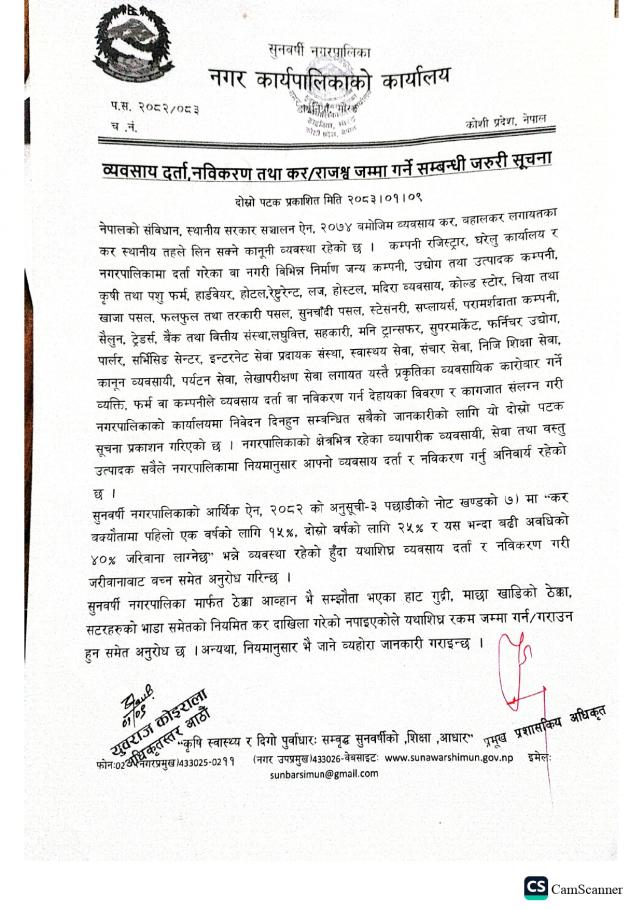 सुनवर्षी नगरपालिका
नगर कार्यपालिकाको कार्यालय
प.स. २०८२/०८३
च .नं.
कोशी प्रदेश, नेपाल
व्यवसाय दर्ता,नविकरण तथा कर/राजश्व जम्मा गर्ने सम्बन्धी जरुरी सूचना
दोस्रो पटक प्रकाशित मिति २०८३।०१।०९
नेपालको संविधान, स्थानीय सरकार सञ्चालन ऐन, २०७४ बमोजिम व्यवसाय कर, बहालकर लगायतका
कर स्थानीय तहले लिन सक्ने कानूनी व्यवस्था रहेको छ । कम्पनी रजिस्ट्रार, घरेलु कार्यालय र
नगरपालिकामा दर्ता गरेका वा नगरी विभिन्न निर्माण जन्य कम्पनी, उद्योग तथा उत्पादक कम्पनी,
कृषी तथा पशु फर्म, हार्डवेयर, होटल,रेष्टुरेन्ट, लज, होस्टल, मदिरा व्यवसाय, कोल्ड स्टोर, चिया तथा
खाजा पसल, फलफुल तथा तरकारी पसल, सुनचाँदी पसल, स्टेसनरी, सप्लायर्स, परामर्शदाता कम्पनी,
सैलुन, ट्रेडर्स, बैंक तथा वित्तीय संस्था,लघुवित्त, सहकारी, मनि ट्रान्सफर, सुपरमार्केट, फर्निचर उद्योग,
पार्लर, सर्भिसिङ सेन्टर, इन्टरनेट सेवा प्रदायक संस्था, स्वास्थय सेवा, संचार सेवा, निजि शिक्षा सेवा,
कानून व्यवसायी, पर्यटन सेवा, लेखापरीक्षण सेवा लगायत यस्तै प्रकृतिका व्यवसायिक कारोवार गर्ने
व्यक्ति, फर्म वा कम्पनीले व्यवसाय दर्ता वा नविकरण गर्न देहायका विवरण र कागजात संलग्न गरी
नगरपालिकाको कार्यालयमा निवेदन दिनहुन सम्बन्धित सबैको जानकारीको लागि यो दोस्रो पटक
सूचना प्रकाशन गरिएको छ । नगरपालिकाको क्षेत्रभित्र रहेका व्यापारीक व्यवसायी, सेवा तथा वस्तु
उत्पादक सबैले नगरपालिकामा नियमानुसार आफ्नो व्यवसाय दर्ता र नविकरण गर्नु अनिवार्य रहेको
छ ।
सुनवर्षी नगरपालिकाको आर्थिक ऐन, २०८२ को अनुसूची-३ पछाडीको नोट खण्डको ७) मा “कर
बक्यौतामा पहिलो एक वर्षको लागि १५%, दोस्रो वर्षको लागि २५% र यस भन्दा बढी अवधिको
४०% जरिवाना लाग्नेछ” भन्ने व्यवस्था रहेको हुँदा यथाशिघ्र व्यवसाय दर्ता र नविकरण गरी
जरीवानाबाट वच्न समेत अनुरोध गरिन्छ ।
सुनवर्षी नगरपालिका मार्फत ठेक्का आव्हान भै सम्झौता भएका हाट गुद्री, माछा खाडिको ठेक्का,
सटरहरुको भाडा समेतको नियमित कर दाखिला गरेको नपाइएकोले यथाशिघ्र रकम जम्मा गर्न/गराउन
हुन समेत अनुरोध छ ।अन्यथा, नियमानुसार भै जाने व्यहोरा जानकारी गराइन्छ ।
०१/०९
युवराज कोइराला
अधिकृतस्तर आठौं
“कृषि स्वास्थ्य र दिगो पुर्वाधारः सम्वृद्ध सुनवर्षीको ,शिक्षा ,आधार”
प्रमूख प्रशासकिय अधिकृत
फोन:02 नगरप्रमुख)433025-0211 (नगर उपप्रमुख)433026-वेबसाइटः www.sunawarshimun.gov.np इमेलः
sunbarsimun@gmail.com
CS CamScanner